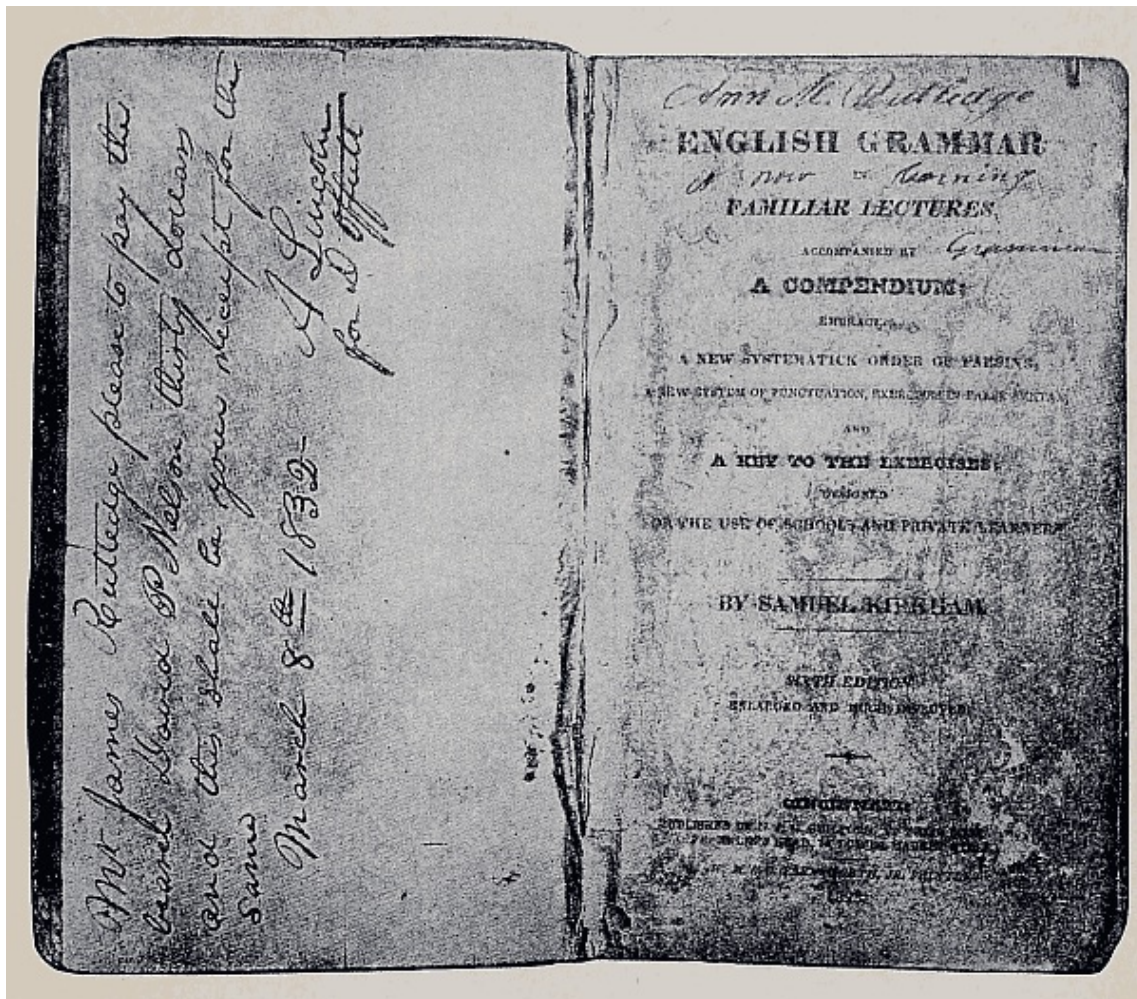 Mr James Rutledge please to pay the
bearer David P Nelson thirty dollars
and this shall be your receipt for the
same
March 8th 1832-
A Lincoln
for D Offutt
Ann M. Rutledge
ENGLISH GRAMMAR
is now IN learning
FAMILIAR LECTURES,
ACCOMPANIED BY Grammar
A COMPENDIUM;
EMBRACING
A NEW SYSTEMATICK ORDER OF PARSING,
A NEW SYSTEM OF PUNCTUATION, EXERCISES IN FALSE SYNTAX,
AND
A KEY TO THE EXERCISES:
DESIGNED
FOR THE USE OF SCHOOLS AND PRIVATE LEARNERS
BY SAMUEL KIRKHAM.
SIXTH EDITION
ENLARGED AND MUCH IMPROVED.
CINCINNATI:
PUBLISHED BY N. & G. GUILFORD